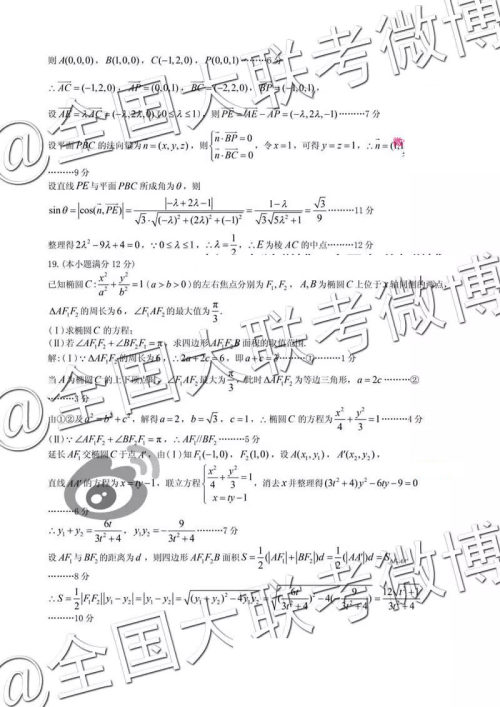 则 A(0,0,0), B(1,0,0), C(−1,2,0), P(0,0,1) ………6分
∴ AC = (−1,2,0), AP = (0,0,1), BC = (−2,2,0), BP = (−1,0,1),
设 AE = λAC = (−λ,2λ,0)(0 ≤ λ ≤ 1), 则 PE = AE − AP = (−λ,2λ,−1) ………7分
设平面 PBC 的法向量为 n = (x,y,z), 则 { n·BP = 0, n·BC = 0 , 令 x = 1, 可得 y = z = 1, ∴ n = (1,1
………9分
设直线 PE 与平面 PBC 所成角为 θ, 则
sin θ = |cos⟨n,PE⟩| = |−λ+2λ−1| / (√3·√((−λ)²+(2λ)²+(−1)²)) = (1−λ)/(√3√(5λ²+1)) = √3/9 ………11分
整理得 2λ² − 9λ + 4 = 0, ∵ 0 ≤ λ ≤ 1, ∴ λ = 1/2, ∴ E 为棱 AC 的中点 ………12分
19. (本小题满分 12 分)
已知椭圆 C: x²/a² + y²/b² = 1 (a > b > 0) 的左右焦点分别为 F₁, F₂, A, B 为椭圆 C 上位于 x 轴同侧的两点,
ΔAF₁F₂ 的周长为 6, ∠F₁AF₂ 的最大值为 π/3.
(Ⅰ) 求椭圆 C 的方程;
(Ⅱ) 若 ∠AF₁F₂ + ∠BF₂F₁ = π, 求四边形 AF₁F₂B 面积的取值范围.
解: (Ⅰ) ∵ ΔAF₁F₂ 的周长为 6, ∴ 2a + 2c = 6, 即 a + c = 3 ………① ………1分
当 A 为椭圆 C 的上下顶点时, ∠F₁AF₂ 最大为 π/3, 此时 ΔAF₁F₂ 为等边三角形, a = 2c ………②
………3分
由①②及 a² = b² + c², 解得 a = 2, b = √3, c = 1, ∴ 椭圆 C 的方程为 x²/4 + y²/3 = 1 ………4分
(Ⅱ) ∵ ∠AF₁F₂ + ∠BF₂F₁ = π, ∴ AF₁//BF₂ ………5分
延长 AF₁ 交椭圆 C 于点 A′, 由 (Ⅰ) 知 F₁(−1,0), F₂(1,0), 设 A(x₁,y₁), A′(x₂,y₂),
直线 AA′ 的方程为 x = ty − 1, 联立方程 { x²/4 + y²/3 = 1, x = ty − 1 , 消去 x 并整理得 (3t² + 4)y² − 6ty − 9 = 0
………6分
∴ y₁ + y₂ = 6t/(3t²+4), y₁y₂ = −9/(3t²+4) ………7分
设 AF₁ 与 BF₂ 的距离为 d, 则四边形 AF₁F₂B 面积 S = 1/2(|AF₁| + |BF₂|)d = 1/2(|AA′|)d = S
………8分
∴ S = 1/2|F₁F₂||y₁ − y₂| = |y₁ − y₂| = √((y₁ + y₂)² − 4y₁y₂) = √((6t/(3t²+4))² − 4(−9/(3t²+4))) = 12√(t²+1)/(3t²+4)
………10分
@全国大联考微博
@全国大联考微博
@全国大联考微博